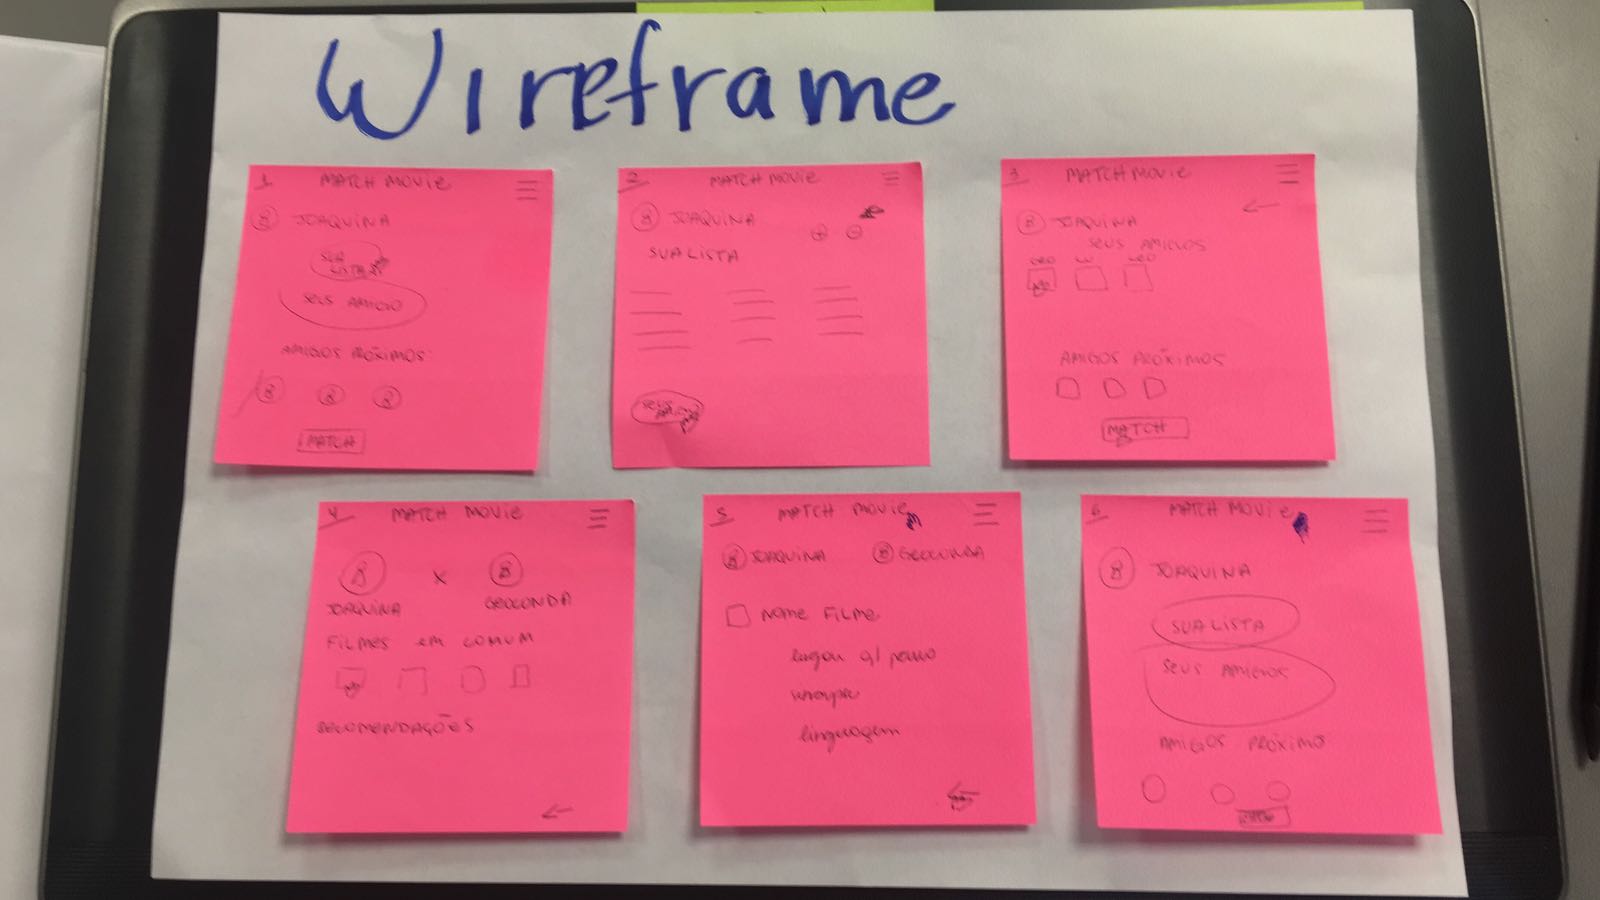 Wireframe
1 MATCH MOVIE
JOAQUINA
SUA
LISTA
SEUS AMIGO
AMIGOS PRÓXIMOS
MATCH
2 MATCH MOVIE
JOAQUINA
SUA LISTA
SEUS
3 MATCH MOVIE
JOAQUINA
SEUS AMIGOS
GEO LU LEO
AMIGOS PRÓXIMOS
MATCH
4 MATCH MOVIE
X
JOAQUINA GEOCONDA
FILMES EM COMUM
RECOMENDAÇÕES
5 MATCH MOVIE
JOAQUINA GEOCONDA
NOME FILME
linguagem
6 MATCH MOVIE
JOAQUINA
SUA LISTA
SEUS AMIGOS
AMIGOS PRÓXIMO